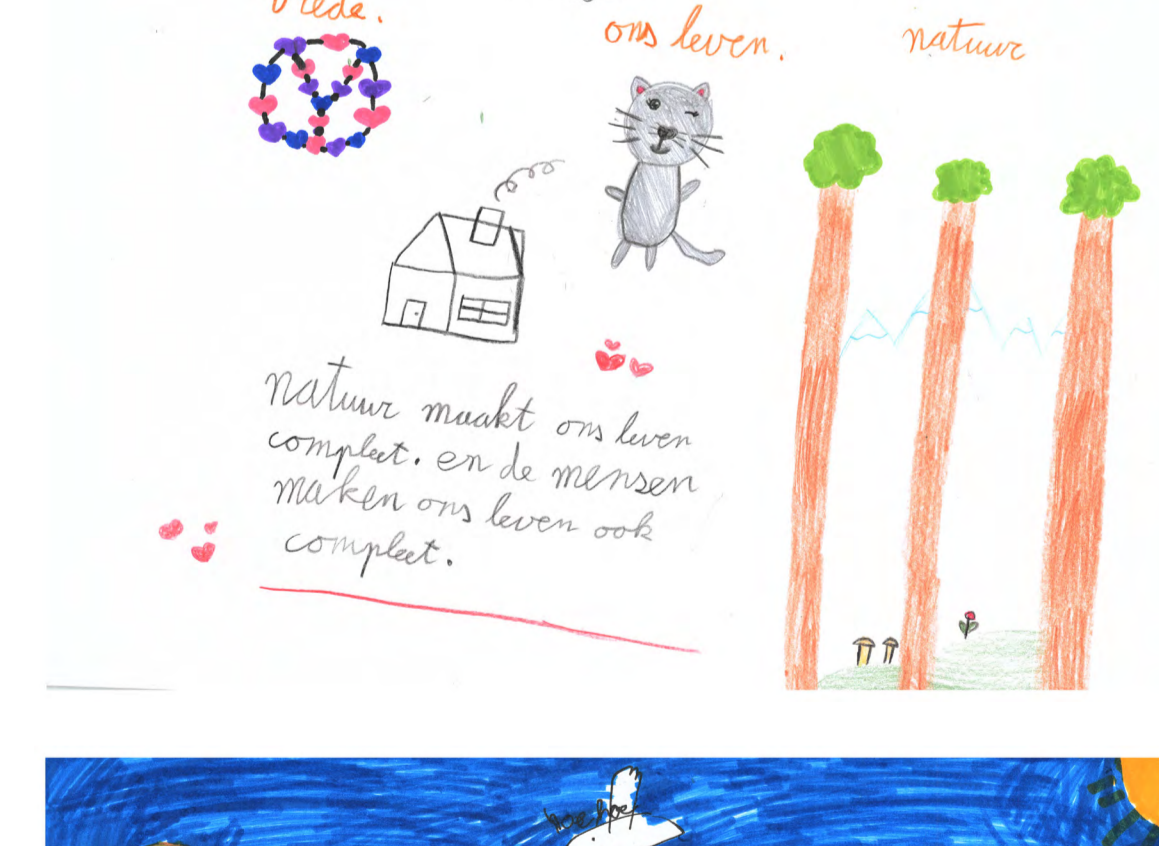 vrede.
ons leven.
natuur
natuur maakt ons leven
compleet. en de mensen
maken ons leven ook
compleet.
hoe hoe